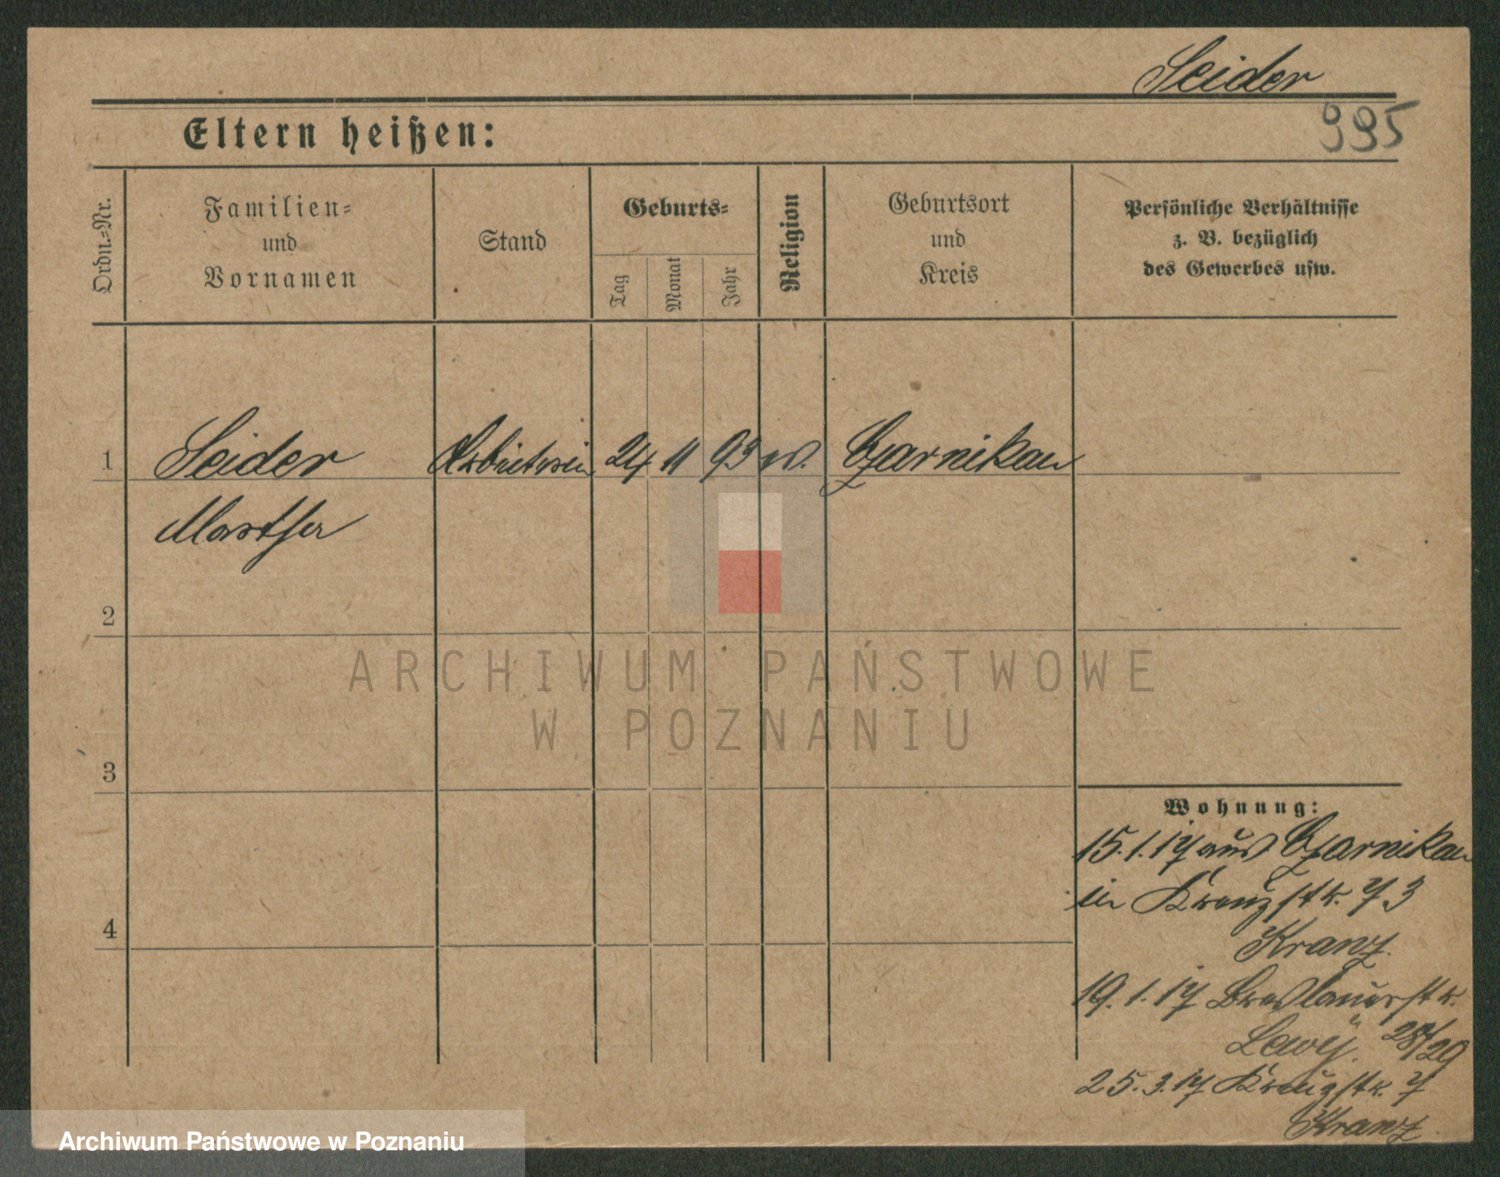 Seider
995
Eltern heißen:
Ordn.-Nr.
Familien-
und
Vornamen
Stand
Geburts-
Tag
Monat
Jahr
Religion
Geburtsort
und
Kreis
Persönliche Verhältnisse
z. B. bezüglich
des Gewerbes usw.
1 Seider Arbeiterin 24 11 93 ev. Czarnikau
Martha
2
3
4
Wohnung:
15.1.17 aus Czarnikau
in Kreuzstr. 73
Kranz.
19.1.17 Breslauerstr.
Lewy. 28/29
25.3.17 Kreuzstr. 7
Kranz.
ARCHIWUM PAŃSTWOWE
W POZNANIU
Archiwum Państwowe w Poznaniu